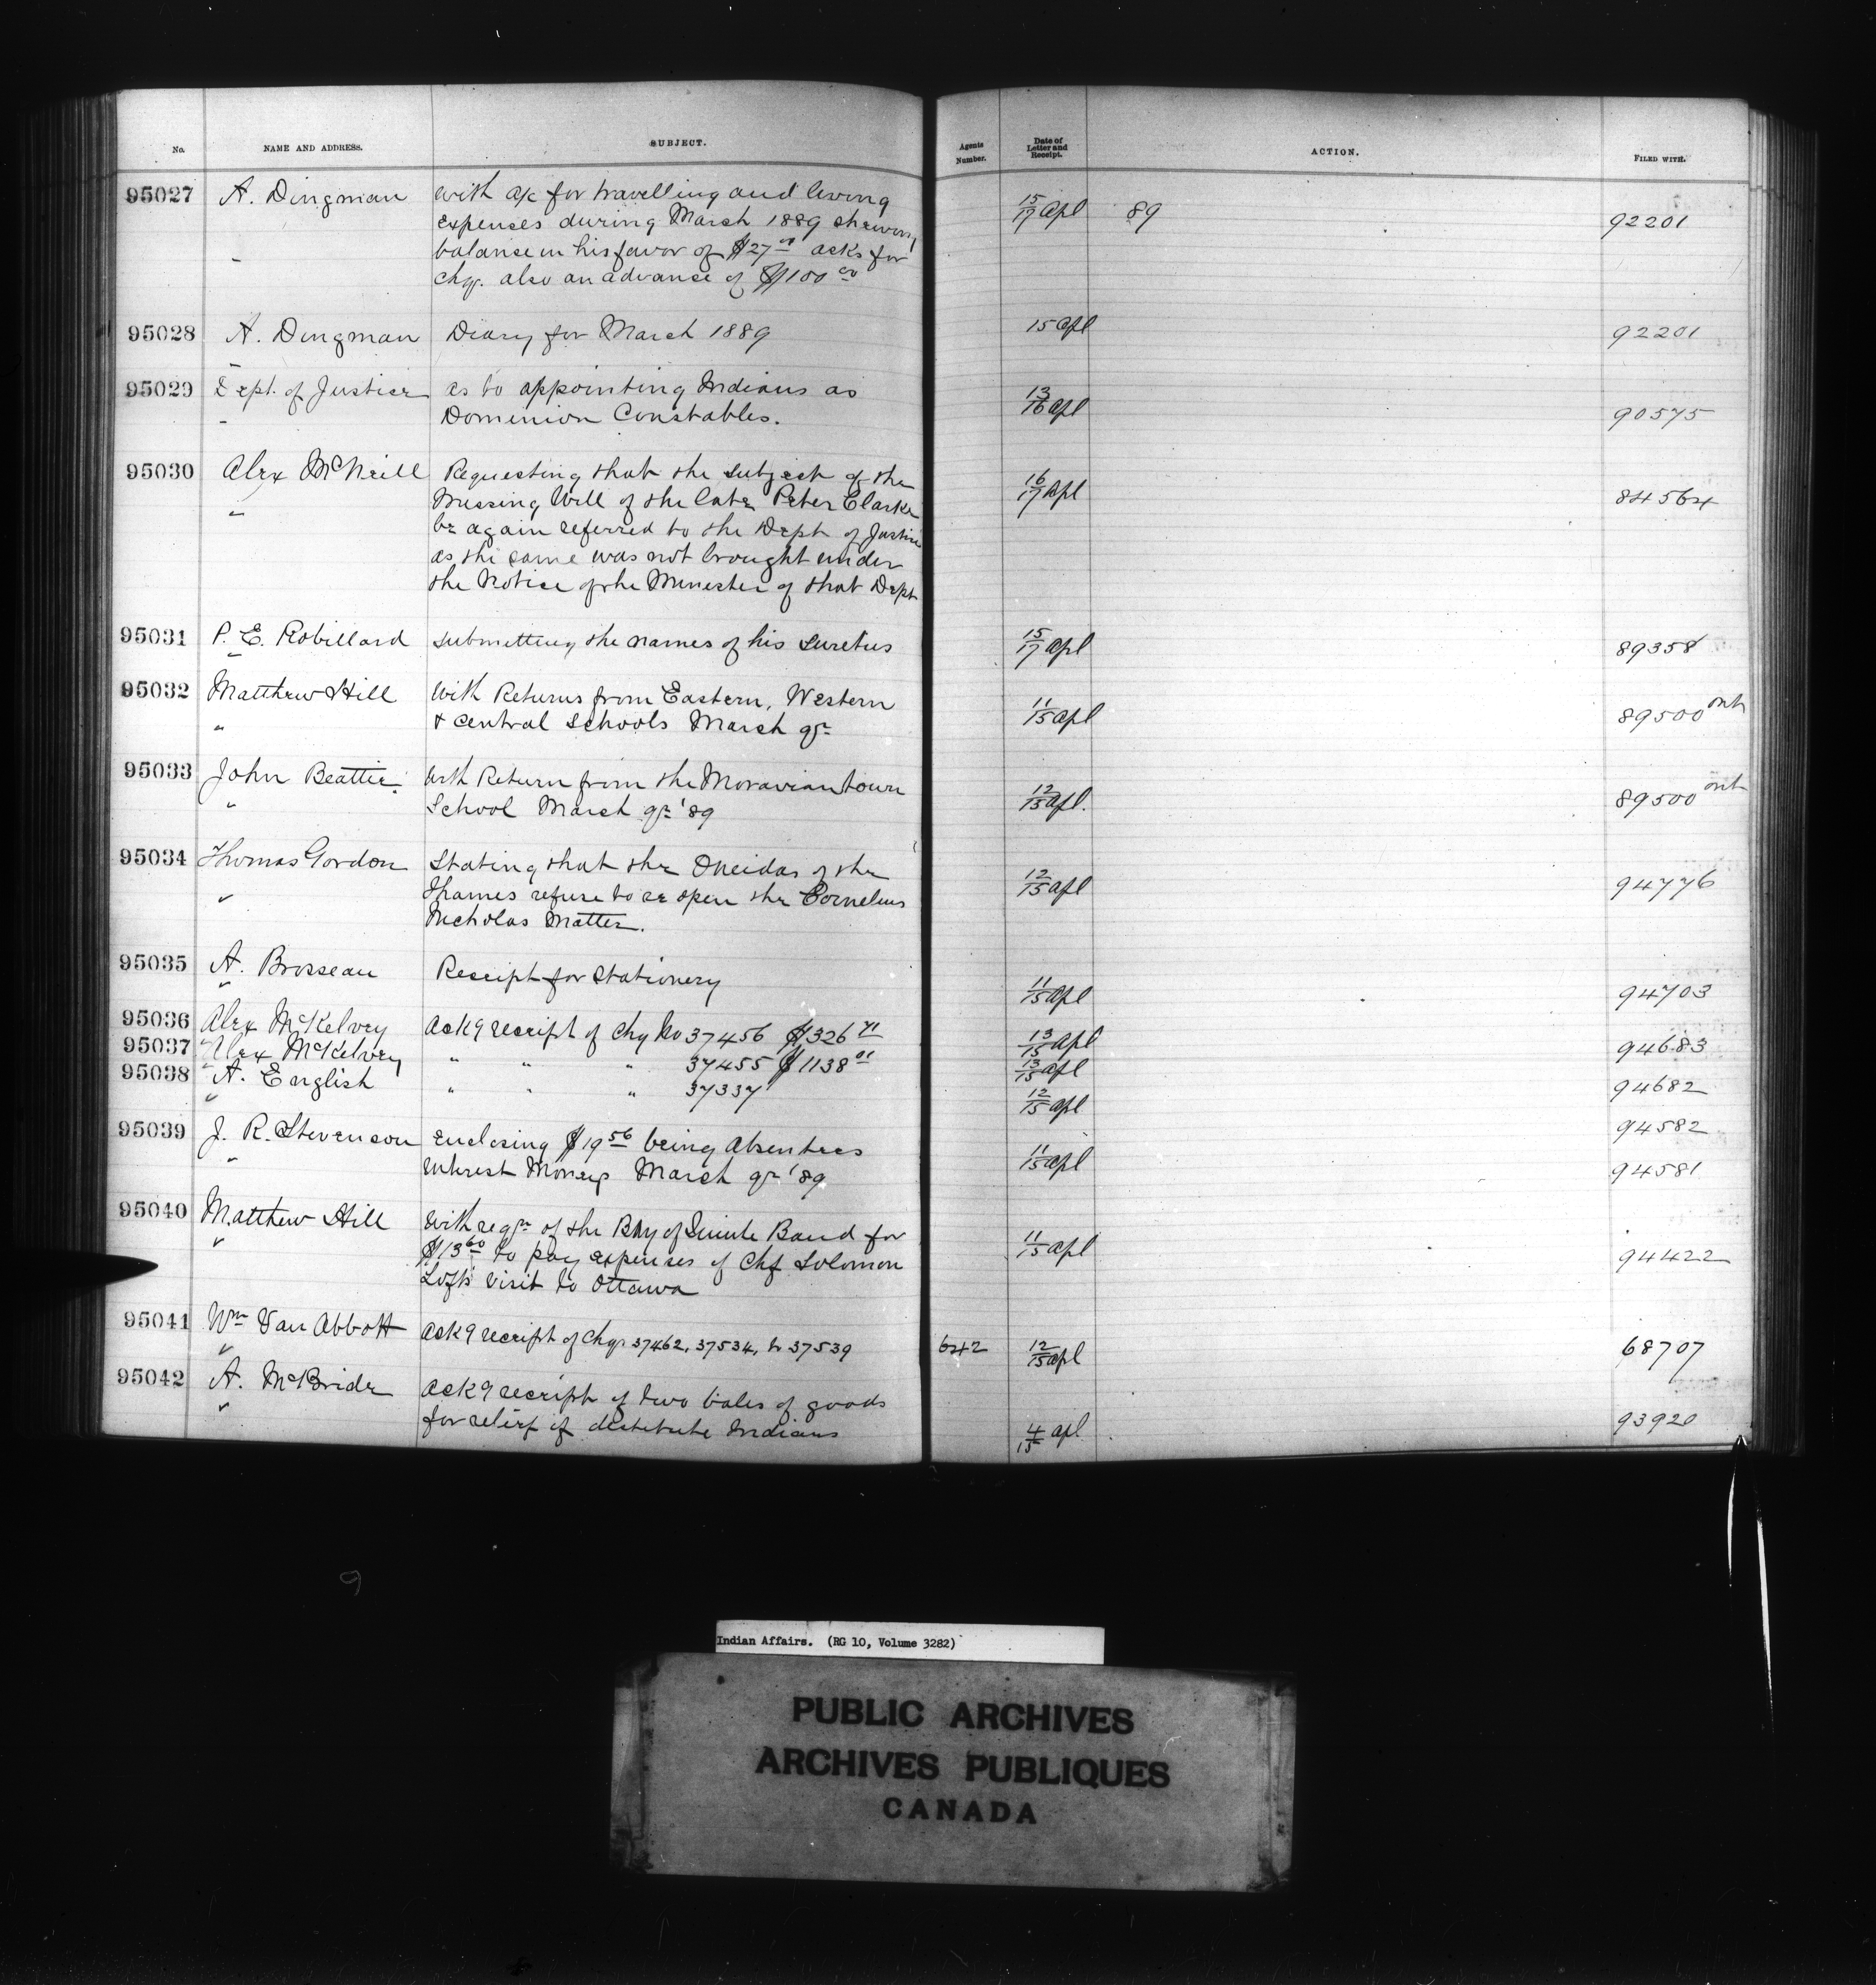 No. NAME AND ADDRESS. SUBJECT. Agents Number. Date of Letter and Receipt. ACTION. FILED WITH.
95027 A. Dingman With a/c for travelling and living 15/17 Apl 89 92201
expenses during March 1889 shewing
balance in his favor of $27 asks for
chq. also an advance of $100 00
95028 A. Dingman Diary for March 1889 15 Apl 92201
95029 Dept. of Justice as to appointing Indians as 13/16 Apl 90575
" Dominion Constables.
95030 Alex McNeill Requesting that the subject of the 16/17 Apl 84564
" Missing Will of the late Peter Clarke
be again referred to the Dept of Justice
as the same was not brought under
the Notice of the Minister of that Dept
95031 P. E. Robillard submitting the names of his sureties 15/17 Apl 89358
"
95032 Matthew Hill With Returns from Eastern, Western 11/15 Apl 89500 Ont
" & Central Schools March qr
95033 John Beattie With Return from the Moraviantown 12/15 Apl. 89500 Ont
" School March qr '89
95034 Thomas Gordon Stating that the Oneidas of the 12/15 Apl 94776
" Thames refuse to re open the Cornelius
Nicholas Matter.
95035 A. Brosseau Receipt for Stationery 11/15 Apl 94703
"
95036 Alex McKelvey Ackg receipt of Chq No 37456 $1326 71 13/15 Apl 94683
95037 Alex McKelvey " " " 37455 $1138 13/15 Apl 94682
95038 A. English " " " 37337 12/15 Apl 94582
"
95039 J. R. Stevenson enclosing $19 56 being Absentees 11/15 Apl 94581
" interest Moneys March qr '89
95040 Matthew Hill With reqn of the Bay of Quinte Band for 11/15 Apl 94422
" $13 60 to pay expenses of Chf Solomon
Lofts visit to Ottawa
95041 Wm Van Abbott Ackg receipt of Chqs 37462, 37534, to 37539 642 12/15 Apl 68707
"
95042 A. McBride Ackg receipt of two bales of goods 4/15 Apl 93920
" for relief of destitute Indians
9
Indian Affairs. (RG 10, Volume 3282)
PUBLIC ARCHIVES
ARCHIVES PUBLIQUES
CANADA